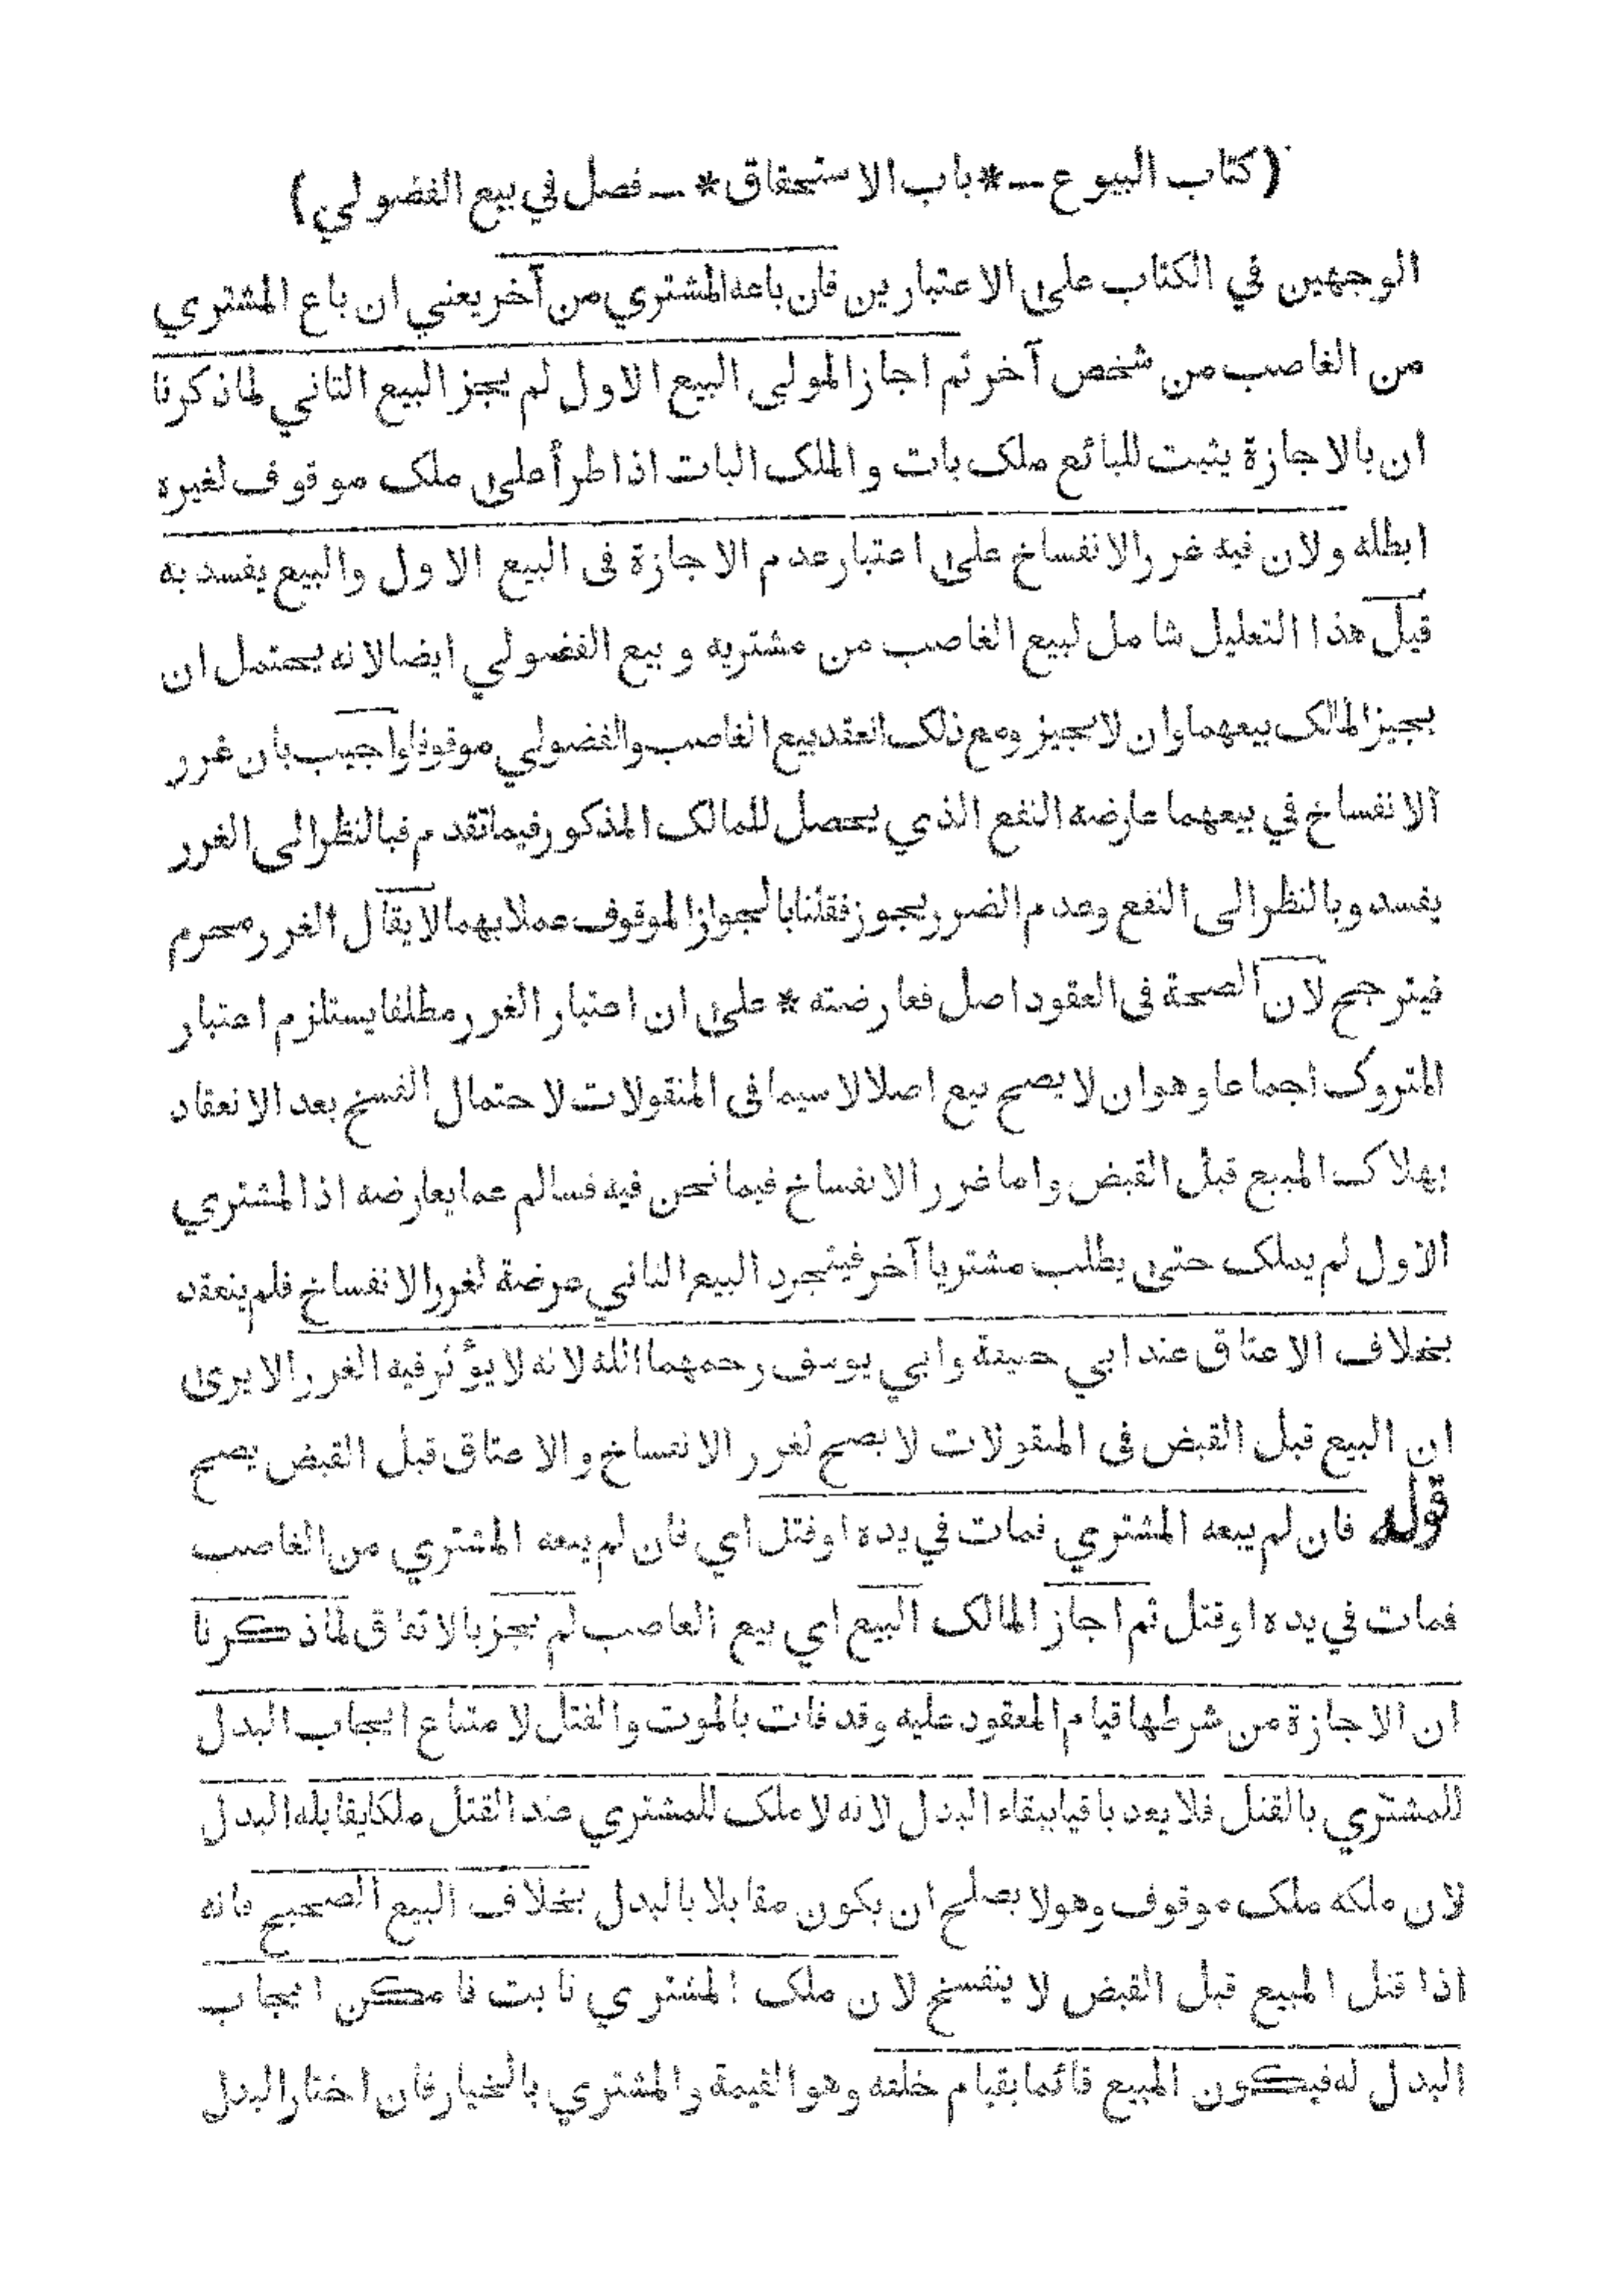 (كتاب البيوع — * باب الاستحقاق * — فصل في بيع الفضولي)
الوجهين في الكتاب على الاعتبارين فان باعه المشتري من آخر يعني ان باع المشتري
من الغاصب من شخص آخر ثم اجاز المولى البيع الاول لم يجز البيع الثاني لما ذكرنا
ان بالاجازة يثبت للبائع ملك بات والملك البات اذا طرأ على ملك موقوف لغيره
ابطله ولان فيه غرر الانفساخ على اعتبار عدم الاجازة فى البيع الاول والبيع يفسد به
قيل هذا التعليل شامل لبيع الغاصب من مشتريه وبيع الفضولي ايضا لانه يحتمل ان
يجيز المالك بيعهما وان لا يجيز ومع ذلك انعقد بيع الغاصب والفضولي موقوفا واجيب بان غرر
الانفساخ في بيعهما عارضه النفع الذي يحصل للمالك المذكور فيما تقدم فبالنظر الى الغرر
يفسد وبالنظر الى النفع وعدم الضرر يجوز فقلنا بالجواز الموقوف عملا بهما لا يقال الغرر محرم
فيترجح لان الصحة فى العقود اصل فعارضته * على ان اعتبار الغرر مطلقا يستلزم اعتبار
المتروك اجماعا وهو ان لا يصح بيع اصلا لا سيما فى المنقولات لاحتمال الفسخ بعد الانعقاد
بهلاك المبيع قبل القبض واما غرر الانفساخ فيما نحن فيه فسالم عما يعارضه اذ المشتري
الاول لم يملك حتى يطلب مشتريا آخر فيتجرد البيع الثاني عرضة لغرر الانفساخ فلم ينعقد
بخلاف الاعتاق عند ابي حنيفة وابي يوسف رحمهما الله لانه لا يؤثر فيه الغرر الا يرى
ان البيع قبل القبض فى المنقولات لا يصح لغرر الانفساخ والاعتاق قبل القبض يصح
قوله فان لم يبعه المشتري فمات في يده او قتل اي فان لم يبعه المشتري من الغاصب
فمات في يده او قتل ثم اجاز المالك البيع اي بيع الغاصب لم يجز بالاتفاق لما ذكرنا
ان الاجازة من شرطها قيام المعقود عليه وقد فات بالموت والقتل لامتناع ايجاب البدل
للمشتري بالقتل فلا يعد باقيا ببقاء البدل لانه لا ملك للمشتري عند القتل ملكا يقابله البدل
لان ملكه ملك موقوف وهو لا يصلح ان يكون مقابلا بالبدل بخلاف البيع الصحيح فانه
اذا قتل المبيع قبل القبض لا ينفسخ لان ملك المشتري ثابت فامكن ايجاب
البدل له فيكون المبيع قائما بقيام خلفه وهو القيمة والمشتري بالخيار فان اختار البدل